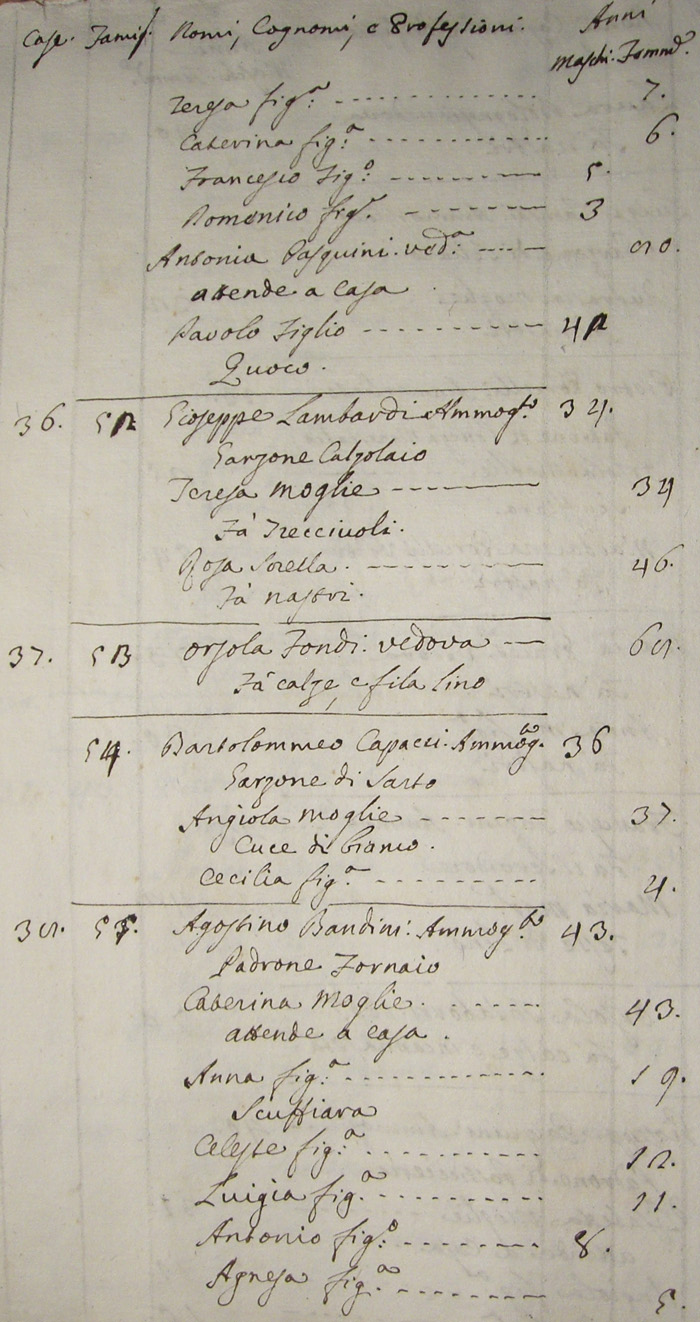 Case. Famig. Nomi, Cognomi, e Professioni. Anni
Maschi. Femmᵉ.
Teresa figᵃ. 7.
Caterina figᵃ. 6.
Francesco Figᵒ. 5.
Domenico figᵒ. 3
Antonia Pasquini. vedᵃ.
attende a Casa
Pavolo Figlio 42
Quoco.
36. 52 Gioseppe Lambardi Ammogᵗᵒ. 34.
Garzone Calzolaio
Teresa moglie 34
Fà Trecciuoli.
Rosa Sorella. 46.
Fà nastri.
37. 53 Orsola Fondi. vedova
Fà calze, e fila lino
54. Bartolommeo Capacci. Ammogᵗᵒ. 36
Garzone di Sarto
Angiola moglie 37.
Cuce di bianco.
Cecilia figᵃ. 4.
38. 55. Agostino Bandini. Ammogᵗᵒ 43.
Padrone Fornaio
Caterina Moglie. 43.
attende a casa.
Anna figᵃ. 19.
Scuffiara
Celeste figᵃ. 12.
Luigia figᵃ. 11.
Antonio figᵒ. 8.
Agnesa figᵃ. 5.